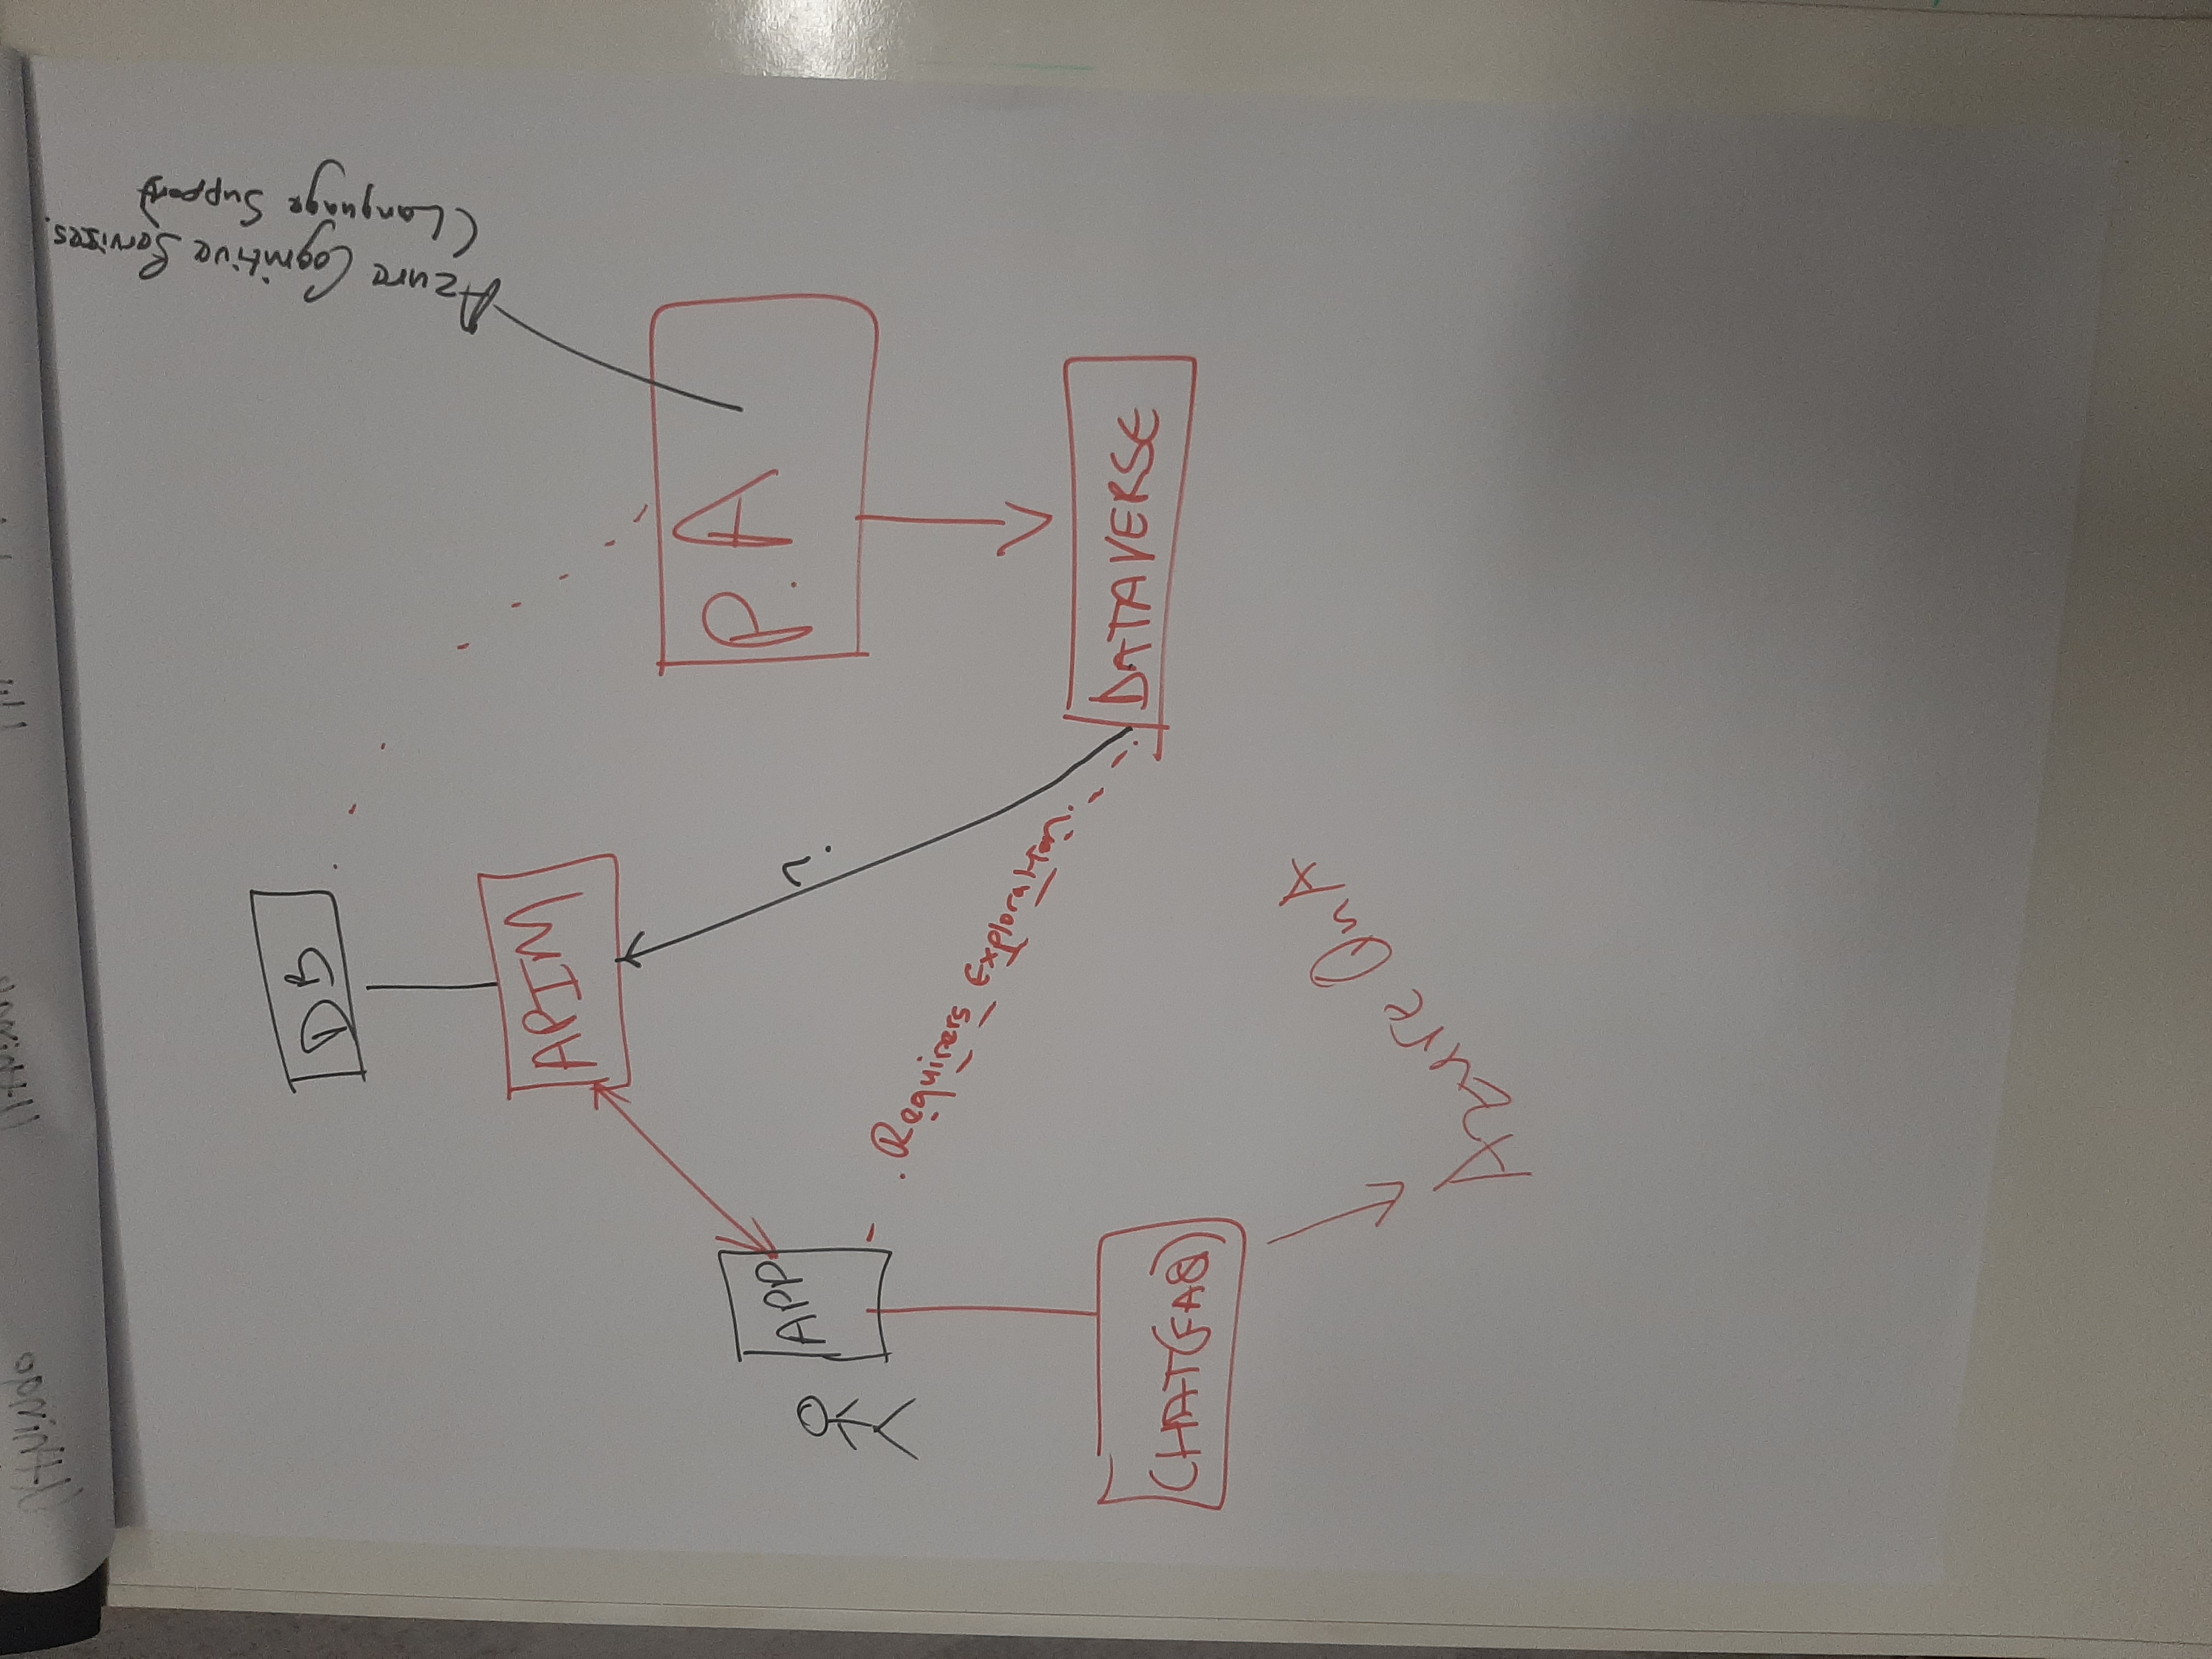 DB
Azure Cognitive Servises.
(Language Support)
APIM
P.A
APP
?
Requirers Exploration.
DATAVERSE
CHAT(FAQ)
Azure QnA